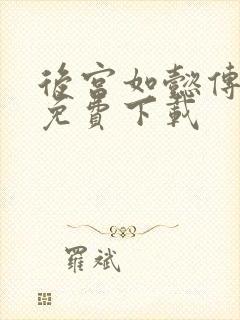 後宮如懿傳
免費下載
羅斌